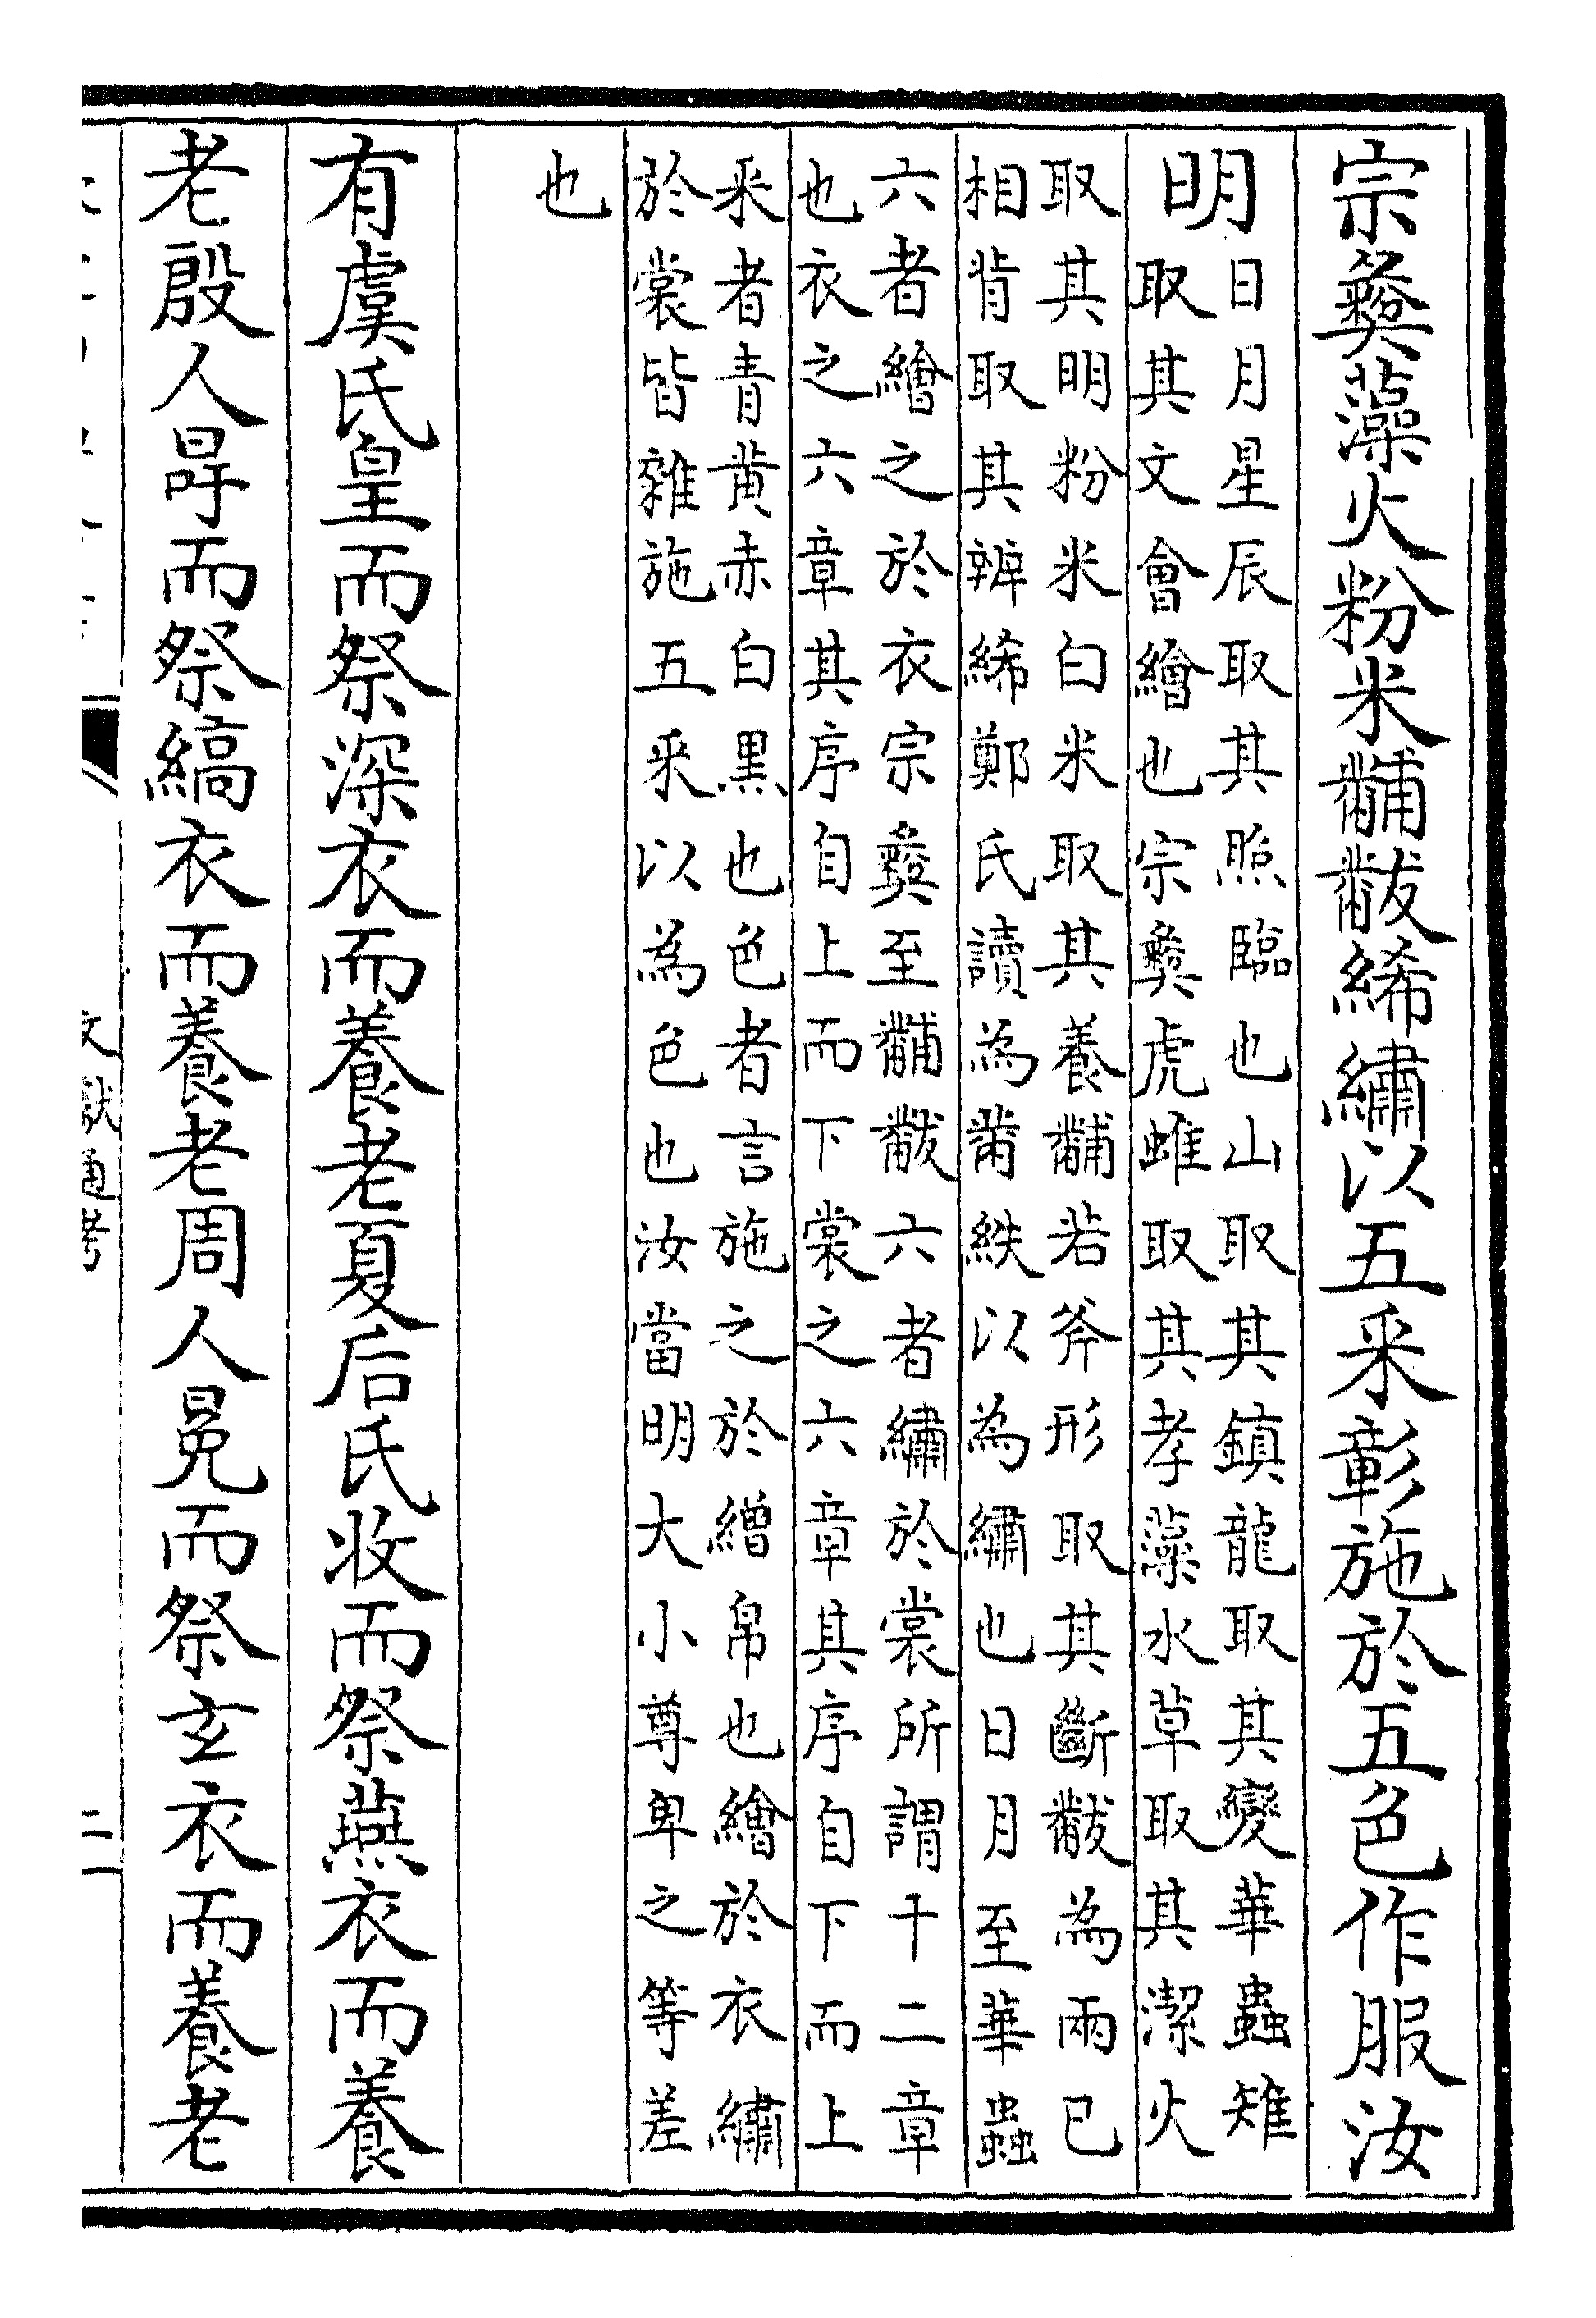 宗彝藻火粉米黼黻絺繡以五采彰施於五色作服汝
明
日月星辰取其照臨也山取其鎮龍取其變華蟲雉
取其文會繪也宗彝虎蜼取其孝藻水草取其潔火
取其明粉米白米取其養黼若斧形取其斷黻為兩已
相背取其辨絺鄭氏讀為黹紩以為繡也日月至華蟲
六者繪之於衣宗彝至黼黻六者繡於裳所謂十二章
也衣之六章其序自上而下裳之六章其序自下而上
采者青黃赤白黑也色者言施之於繒帛也繪於衣繡
於裳皆雜施五采以為色也汝當明大小尊卑之等差
也
有虞氏皇而祭深衣而養老夏后氏收而祭燕衣而養
老殷人冔而祭縞衣而養老周人冕而祭玄衣而養老
文獻通考
二